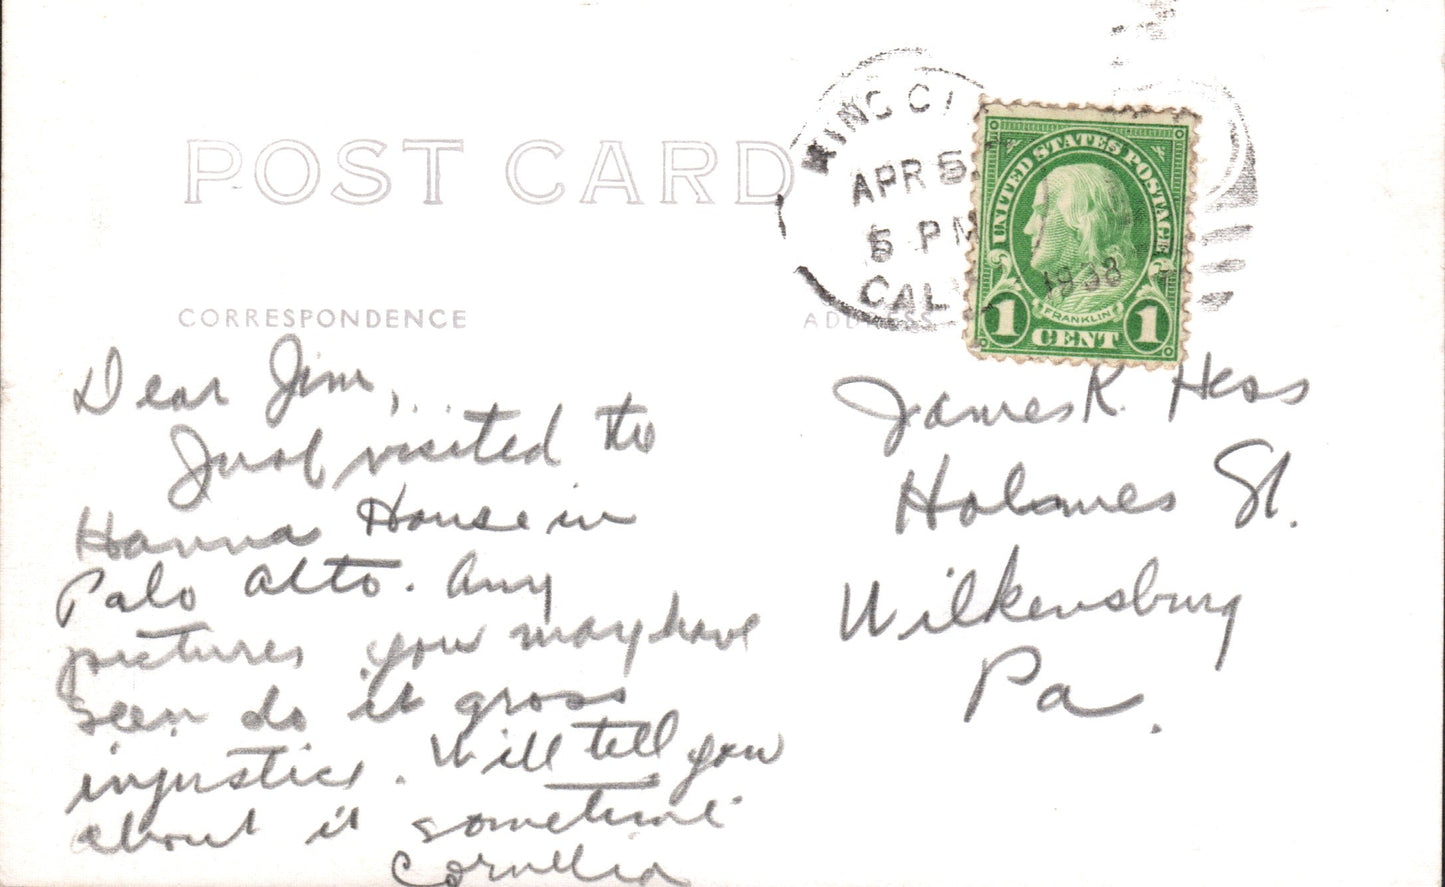 POST CARD
KING CI
APR 5
5 PM
CAL
1938
UNITED STATES POSTAGE
FRANKLIN
1 CENT 1
CORRESPONDENCE
ADDRESS
Dear Jim,
Just visited the
Hanna House in
Palo Alto. Any
pictures you may have
seen do it gross
injustice. Will tell you
about it sometime
Cornelia
James R. Hess
Holmes St.
Wilkensburg
Pa.